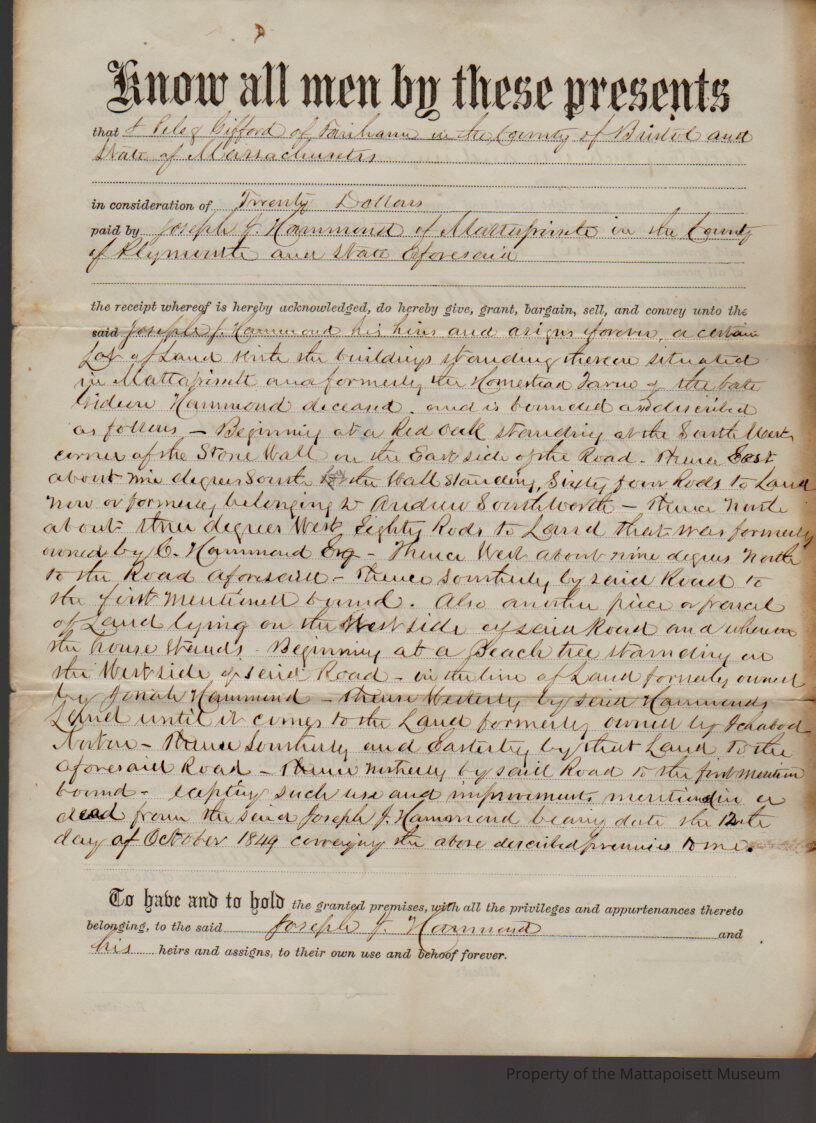 Know all men by these presents
that I Peleg Gifford of Fairhaven in the County of Bristol and
State of Massachusetts
in consideration of Twenty Dollars
paid by Joseph J. Hammond of Mattapoisett in the County
of Plymouth and State aforesaid
the receipt whereof is hereby acknowledged, do hereby give, grant, bargain, sell, and convey unto the
said Joseph J. Hammond his heirs and asigns forever, a certain
Lot of Land With the buildings standing thereon situated
in Mattapoisett and formerly the Homestead Farm of the late
Gideon Hammond deceased. and is bounded and discribed
as follows - Beginning at a Red Oak standing at the South West
corner of the Stone Wall on the East side of the Road. Thence East
about nine degrees South by the Wall standing, Sixty four Rods to Land
now or formerly belonging to Andrew Southworth - Thence North
about three degrees West Eighty Rods to Land that was formerly
owned by C. Hammond Esq - Thence West about nine degrees North
to the Road aforesaid - Thence Southerly by said Road to
the first mentioned bound. Also another piece or parcel
of Land lying on the West side of said Road and whereon
the house stands - Beginning at a Beach tree standing on
the West side of said Road - in the line of Land formerly owned
by Jonah Hammond - thence Westerly by said Hammonds
Land until it comes to the Land formerly owned by Ichabod
Norton - Thence Southerly and Easterly by that Land to the
aforesaid Road - Thence Northerly by said Road to the first mention
bound - excepting such use and improvements mentioned in a
dead from the said Joseph J. Hammond bearing date the 12th
day of October 1849 conveying the above described premises to me.
To have and to hold the granted premises, with all the privileges and appurtenances thereto
belonging, to the said Joseph J. Hammond and
his heirs and assigns, to their own use and behoof forever.
Property of the Mattapoisett Museum